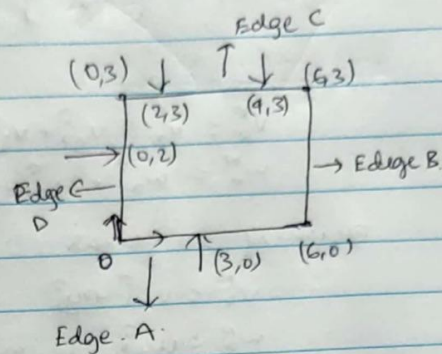 Edge C
(0,3)
(6,3)
(2,3)
(4,3)
(0,2)
Edge B
Edge
D
0
(3,0)
(6,0)
Edge. A.